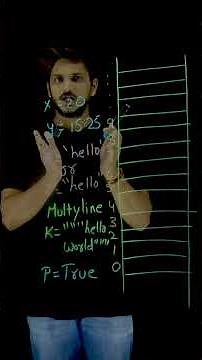 x = 20
y = 15.25
"hello"
or
"hello"
Multyline
K= """hello
World"""
P=True
4
3
2
1
0